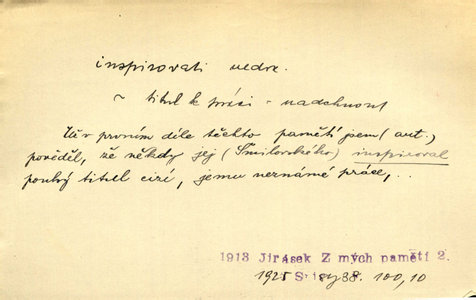 inspirovati nedok.
~ titul k práci - nadchnout
Už v prvním díle těchto pamětí jsem (aut.)
pověděl, že někdy jej (Šmilovského) inspiroval
pouhý titul cizí, jemu neznámé práce,..
1913 Jirásek Z mých pamětí 2.
1925 38. 100,10